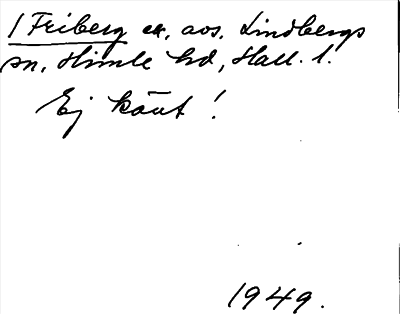 1 Friberg ex. avs. Lindbergs
sn, Himle hd, Hall. l.
Ej känt!
1949.